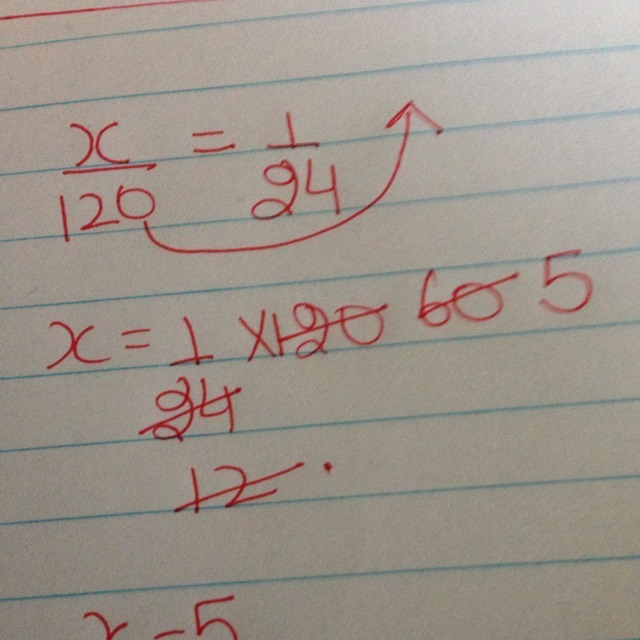 x/120 = 1/24
x = 1/24 × 120 60 5
12
x = 5